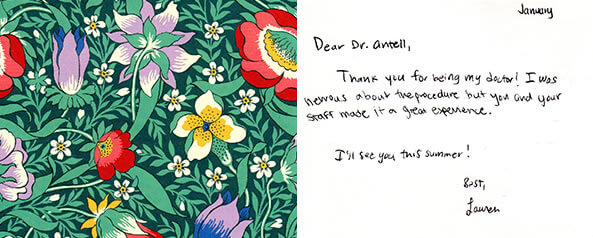 January
Dear Dr. Antell,
Thank you for being my doctor! I was
nervous about the procedure but you and your
staff made it a great experience.
I'll see you this summer!
Best,
Lauren